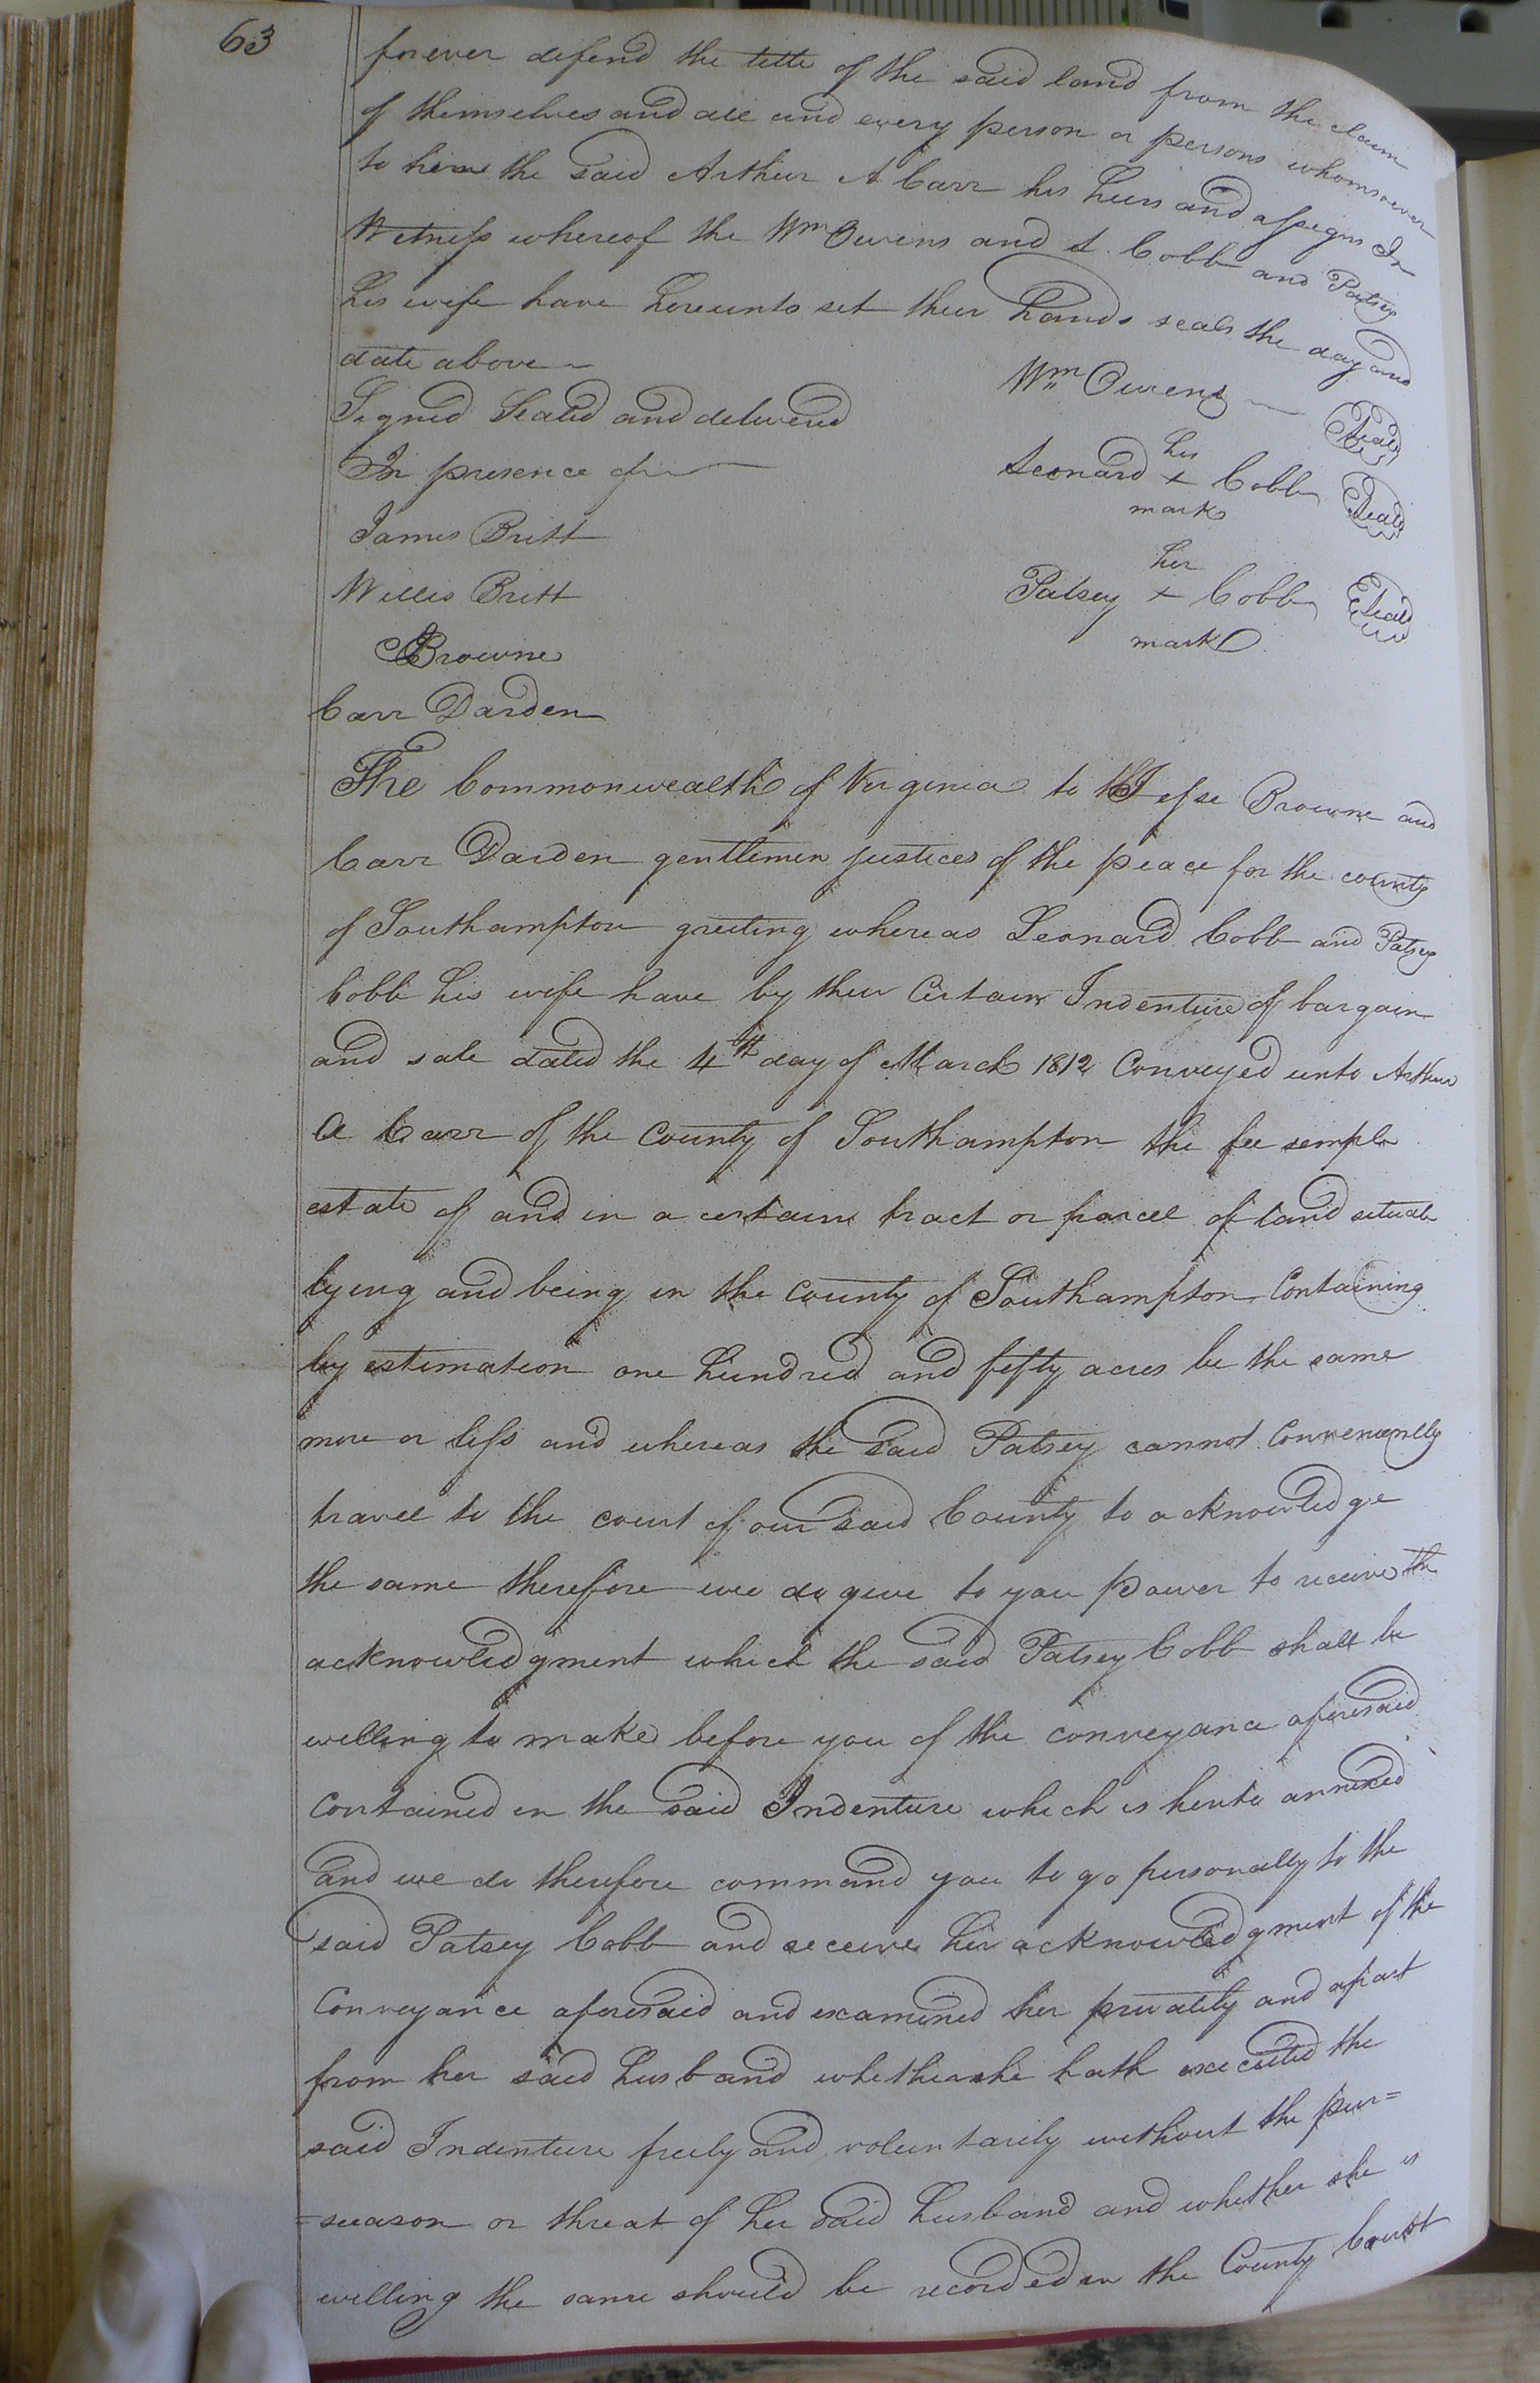 63
forever defend the title of the said land from the claim
of themselves and all and every person or persons whomsoever
to him the said Arthur A Carr his heirs and assigns In
Witness whereof the Wm Owens and L. Cobb and Patsey
his wife have hereunto set their hands seals the day and
date above
Signed Sealed and delivered
In presence of
Wm Owens Seal
his
Leonard + Cobb Seal
mark
her
Patsey + Cobb Seal
mark
James Britt
Willis Britt
J Browne
Carr Darden
The Commonwealth of Virginia to Jesse Browne and
Carr Darden gentlemen justices of the peace for the county
of Southampton greeting whereas Leonard Cobb and Patsey
Cobb his wife have by their Certain Indenture of bargain
and sale dated the 4th day of March 1812 Conveyed unto Arthur
A Carr of the County of Southampton the fee simple
estate of and in a certain tract or parcel of land situate
lying and being in the County of Southampton Containing
by estimation one hundred and fifty acres be the same
more or less and whereas the said Patsey cannot Conveniently
travel to the court of our said County to acknowledge
the same therefore we do give to you power to receive the
acknowledgment which the said Patsey Cobb shall be
willing to make before you of the conveyance aforesaid
contained in the said Indenture which is hereto annexed
and we do therefore command you to go personally to the
said Patsey Cobb and receive her acknowledgment of the
Conveyance aforesaid and examined her privately and apart
from her said husband whether she hath executed the
said Indenture freely and voluntarily without the per=
=suason or threat of her said husband and whether she is
willing the same should be recorded in the County Court